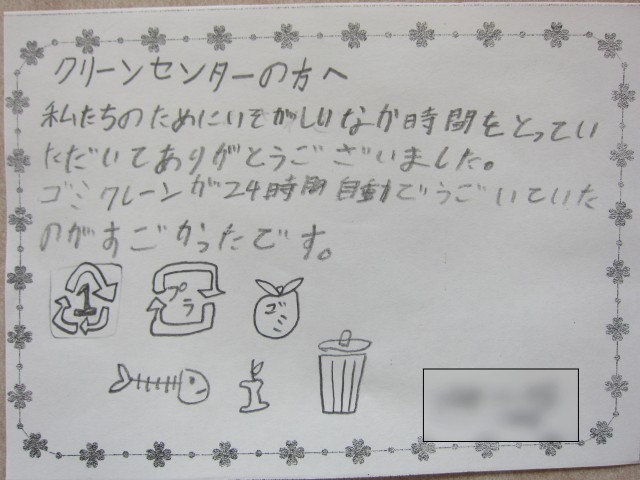 クリーンセンターの方へ
私たちのためにいそがしいなか時間をとってい
ただいてありがとうございました。
ゴミクレーンが24時間自動でうごいていた
のがすごかったです。
1
プラ
ゴミ